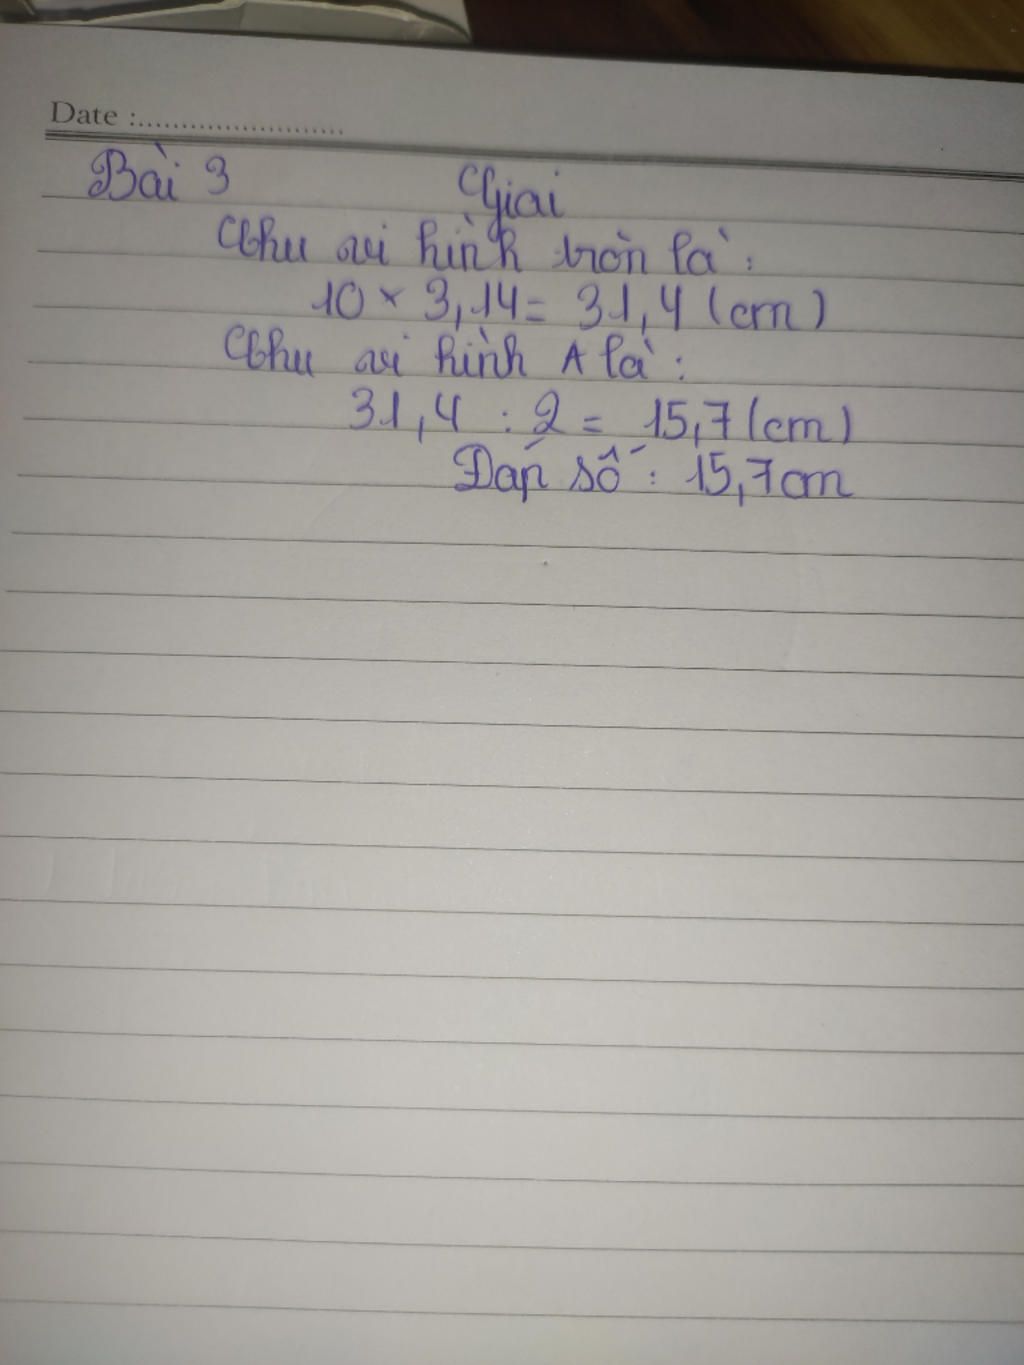 Date :........................
Bài 3 Giai
Chu vi hình tròn là :
10 × 3,14 = 31,4 (cm)
Chu vi hình A là :
31,4 : 2 = 15,7 (cm)
Đáp số : 15,7 cm